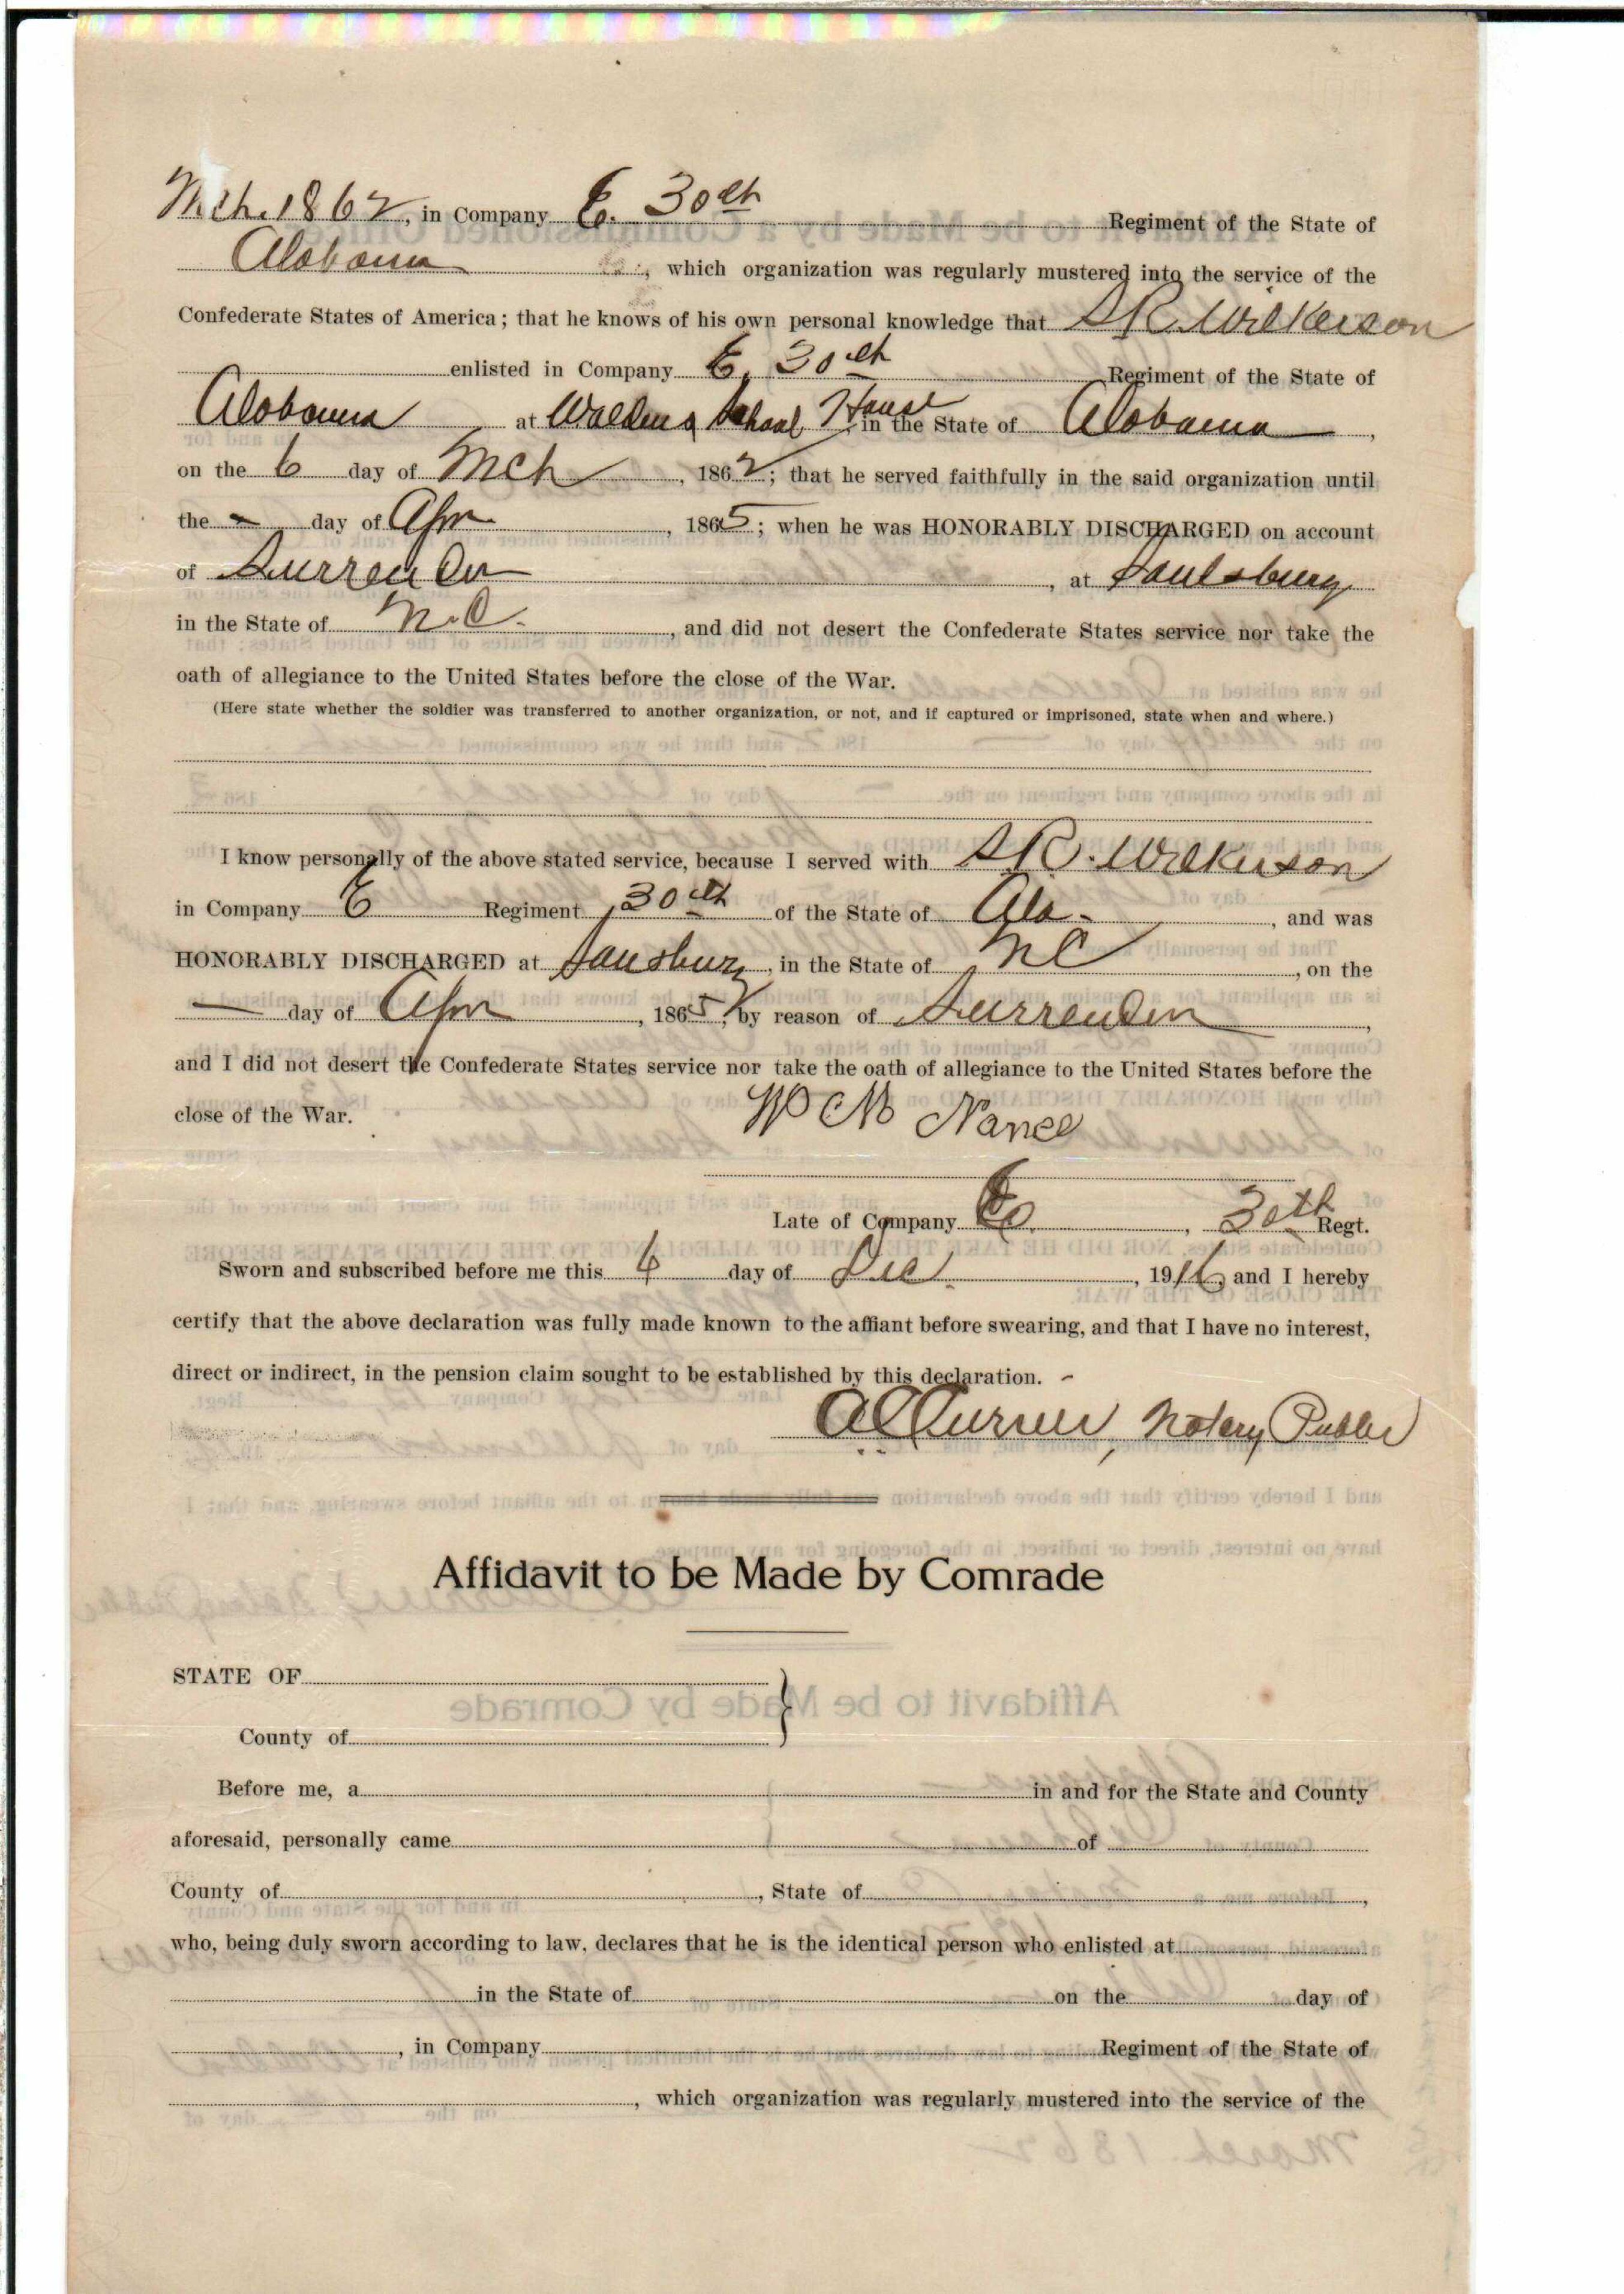 Mch. 1862, in Company E. 30th Regiment of the State of
Alabama, which organization was regularly mustered into the service of the
Confederate States of America; that he knows of his own personal knowledge that S R. Wilkerson
enlisted in Company E, 30th Regiment of the State of
Alabama at Waldens School House in the State of Alabama,
on the 6 day of Mch, 1862; that he served faithfully in the said organization until
the - day of Apr, 1865; when he was HONORABLY DISCHARGED on account
of Surrender, at Saulsbury
in the State of N.C., and did not desert the Confederate States service nor take the
oath of allegiance to the United States before the close of the War.
(Here state whether the soldier was transferred to another organization, or not, and if captured or imprisoned, state when and where.)
I know personally of the above stated service, because I served with S R. Wilkerson
in Company E Regiment 30th of the State of Ala., and was
HONORABLY DISCHARGED at Sausbury, in the State of N C, on the
— day of Apr, 1865, by reason of Surrender,
and I did not desert the Confederate States service nor take the oath of allegiance to the United States before the
close of the War.
W M Nance
Late of Company E, 30th Regt.
Sworn and subscribed before me this 6 day of Dec., 1916, and I hereby
certify that the above declaration was fully made known to the affiant before swearing, and that I have no interest,
direct or indirect, in the pension claim sought to be established by this declaration.
Notary Public
Affidavit to be Made by Comrade
STATE OF
County of
Before me, a in and for the State and County
aforesaid, personally came of
County of, State of,
who, being duly sworn according to law, declares that he is the identical person who enlisted at
in the State of on the day of
, in Company Regiment of the State of
, which organization was regularly mustered into the service of the